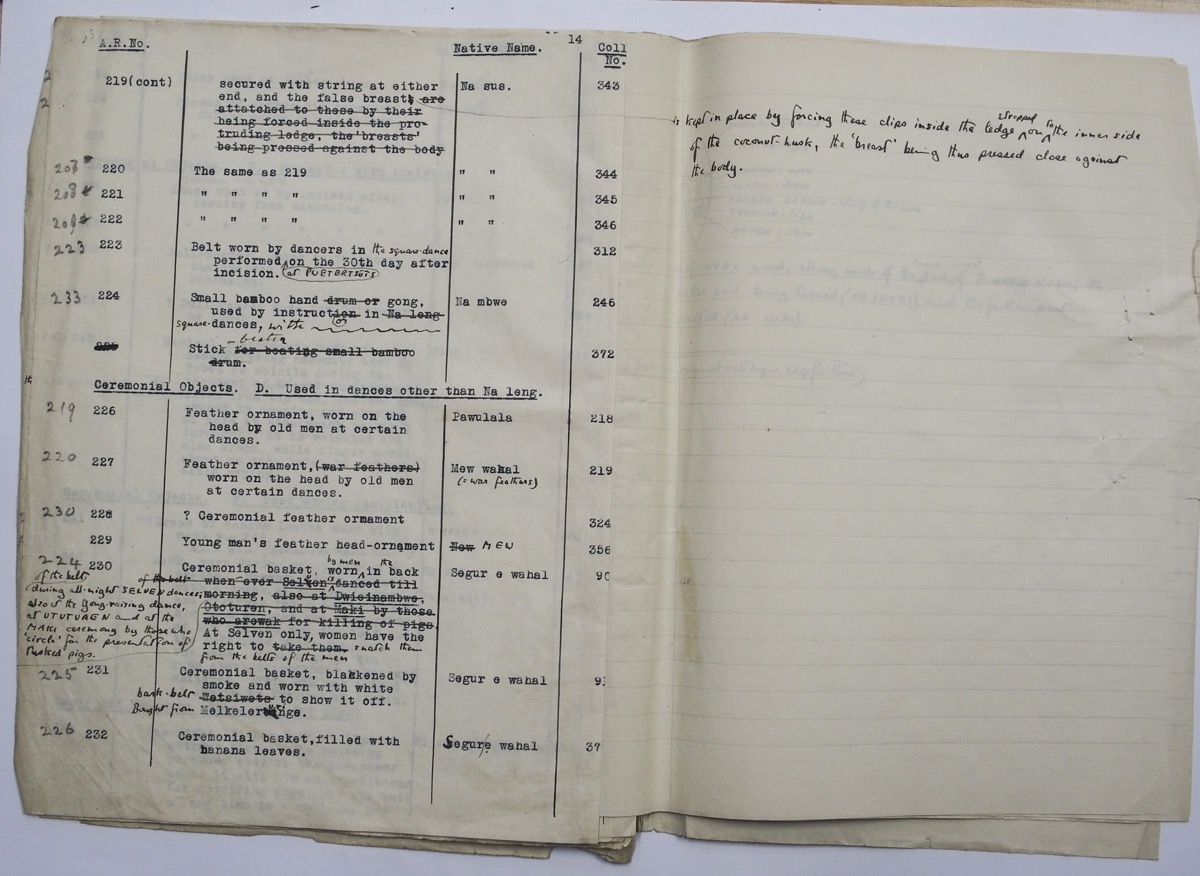 14
A.R.No. Native Name. Coll No.
219(cont) secured with string at either Na sus. 343
end, and the false breasts are
attatched to these by their
being forced inside the pro-
truding ledge, the 'breasts'
being pressed against the body
220 The same as 219 " " 344
208 221 " " " " " " 345
209 222 " " " " " " 346
223 223 Belt worn by dancers in the square-dance 312
performed on the 30th day after
incision. (at PUETERTSOTS)
233 224 Small bamboo hand drum or gong, Na mbwe 246
used by instruction in Na leng
square-dances, with
beater
225 Stick for beating small bamboo 372
drum.
Ceremonial Objects. D. Used in dances other than Na leng.
219 226 Feather ornament, worn on the Pawulala 218
head by old men at certain
dances.
220 227 Feather ornament,(war feathers) Mew wahal 219
worn on the head by old men (= war feathers)
at certain dances.
230 228 ? Ceremonial feather ornament 324
229 Young man's feather head-ornament New MEW 356
224 230 Ceremonial basket, worn by men in the back Segur e wahal 90
of the belt
of the belt when ever Selven is danced till
(during all-night SELVEN dances; morning, also at Dwicinambwe,
also at the Gong-raising dance, Ototuren, and at Maki by those
at UTUTUREN and at the who arowak for killing of pigs.
MAKI ceremony by those who At Selven only, women have the
'circle' for the presentation of right to take them. snatch them
tusked pigs. from the belts of the men
225 231 Ceremonial basket, blackened by Segur e wahal 91
smoke and worn with white
bark-belt Wetsiwets to show it off.
Bought from Melkeler
226 232 Ceremonial basket,filled with Segur e wahal 37
banana leaves.
is kept in place by forcing these clips inside the ledge strapped on to the inner side
of the coconut-husk, the 'breast' being thus pressed close against
the body.